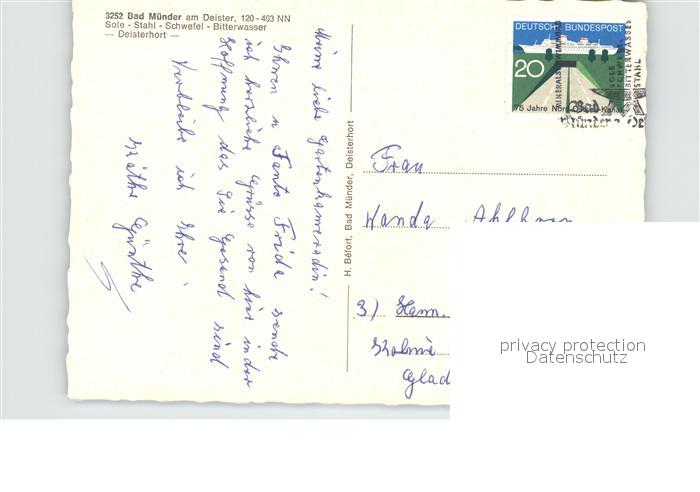 3252 Bad Münder am Deister, 120 - 463 NN
Sole - Stahl - Schwefel - Bitterwasser
— Deisterhort —
Meine liebe Gartenkameradin!
Ihnen u Tante Frida sende
ich herzliche Grüsse von hier in der
Hoffnung das Sie Gesund sind
Verbleibe ich Ihre
Käthe Günthe
H. Béfort, Bad Münder, Deisterhort
DEUTSCHE BUNDESPOST
20
75 Jahre Nord
MINERALSCHWIMMBAD
SOLE
SCHWEFEL
BITTERWASSER
STAHL
Bad
Münder
Frau
Wanda
3) Hann.
Glad
privacy protection
Datenschutz